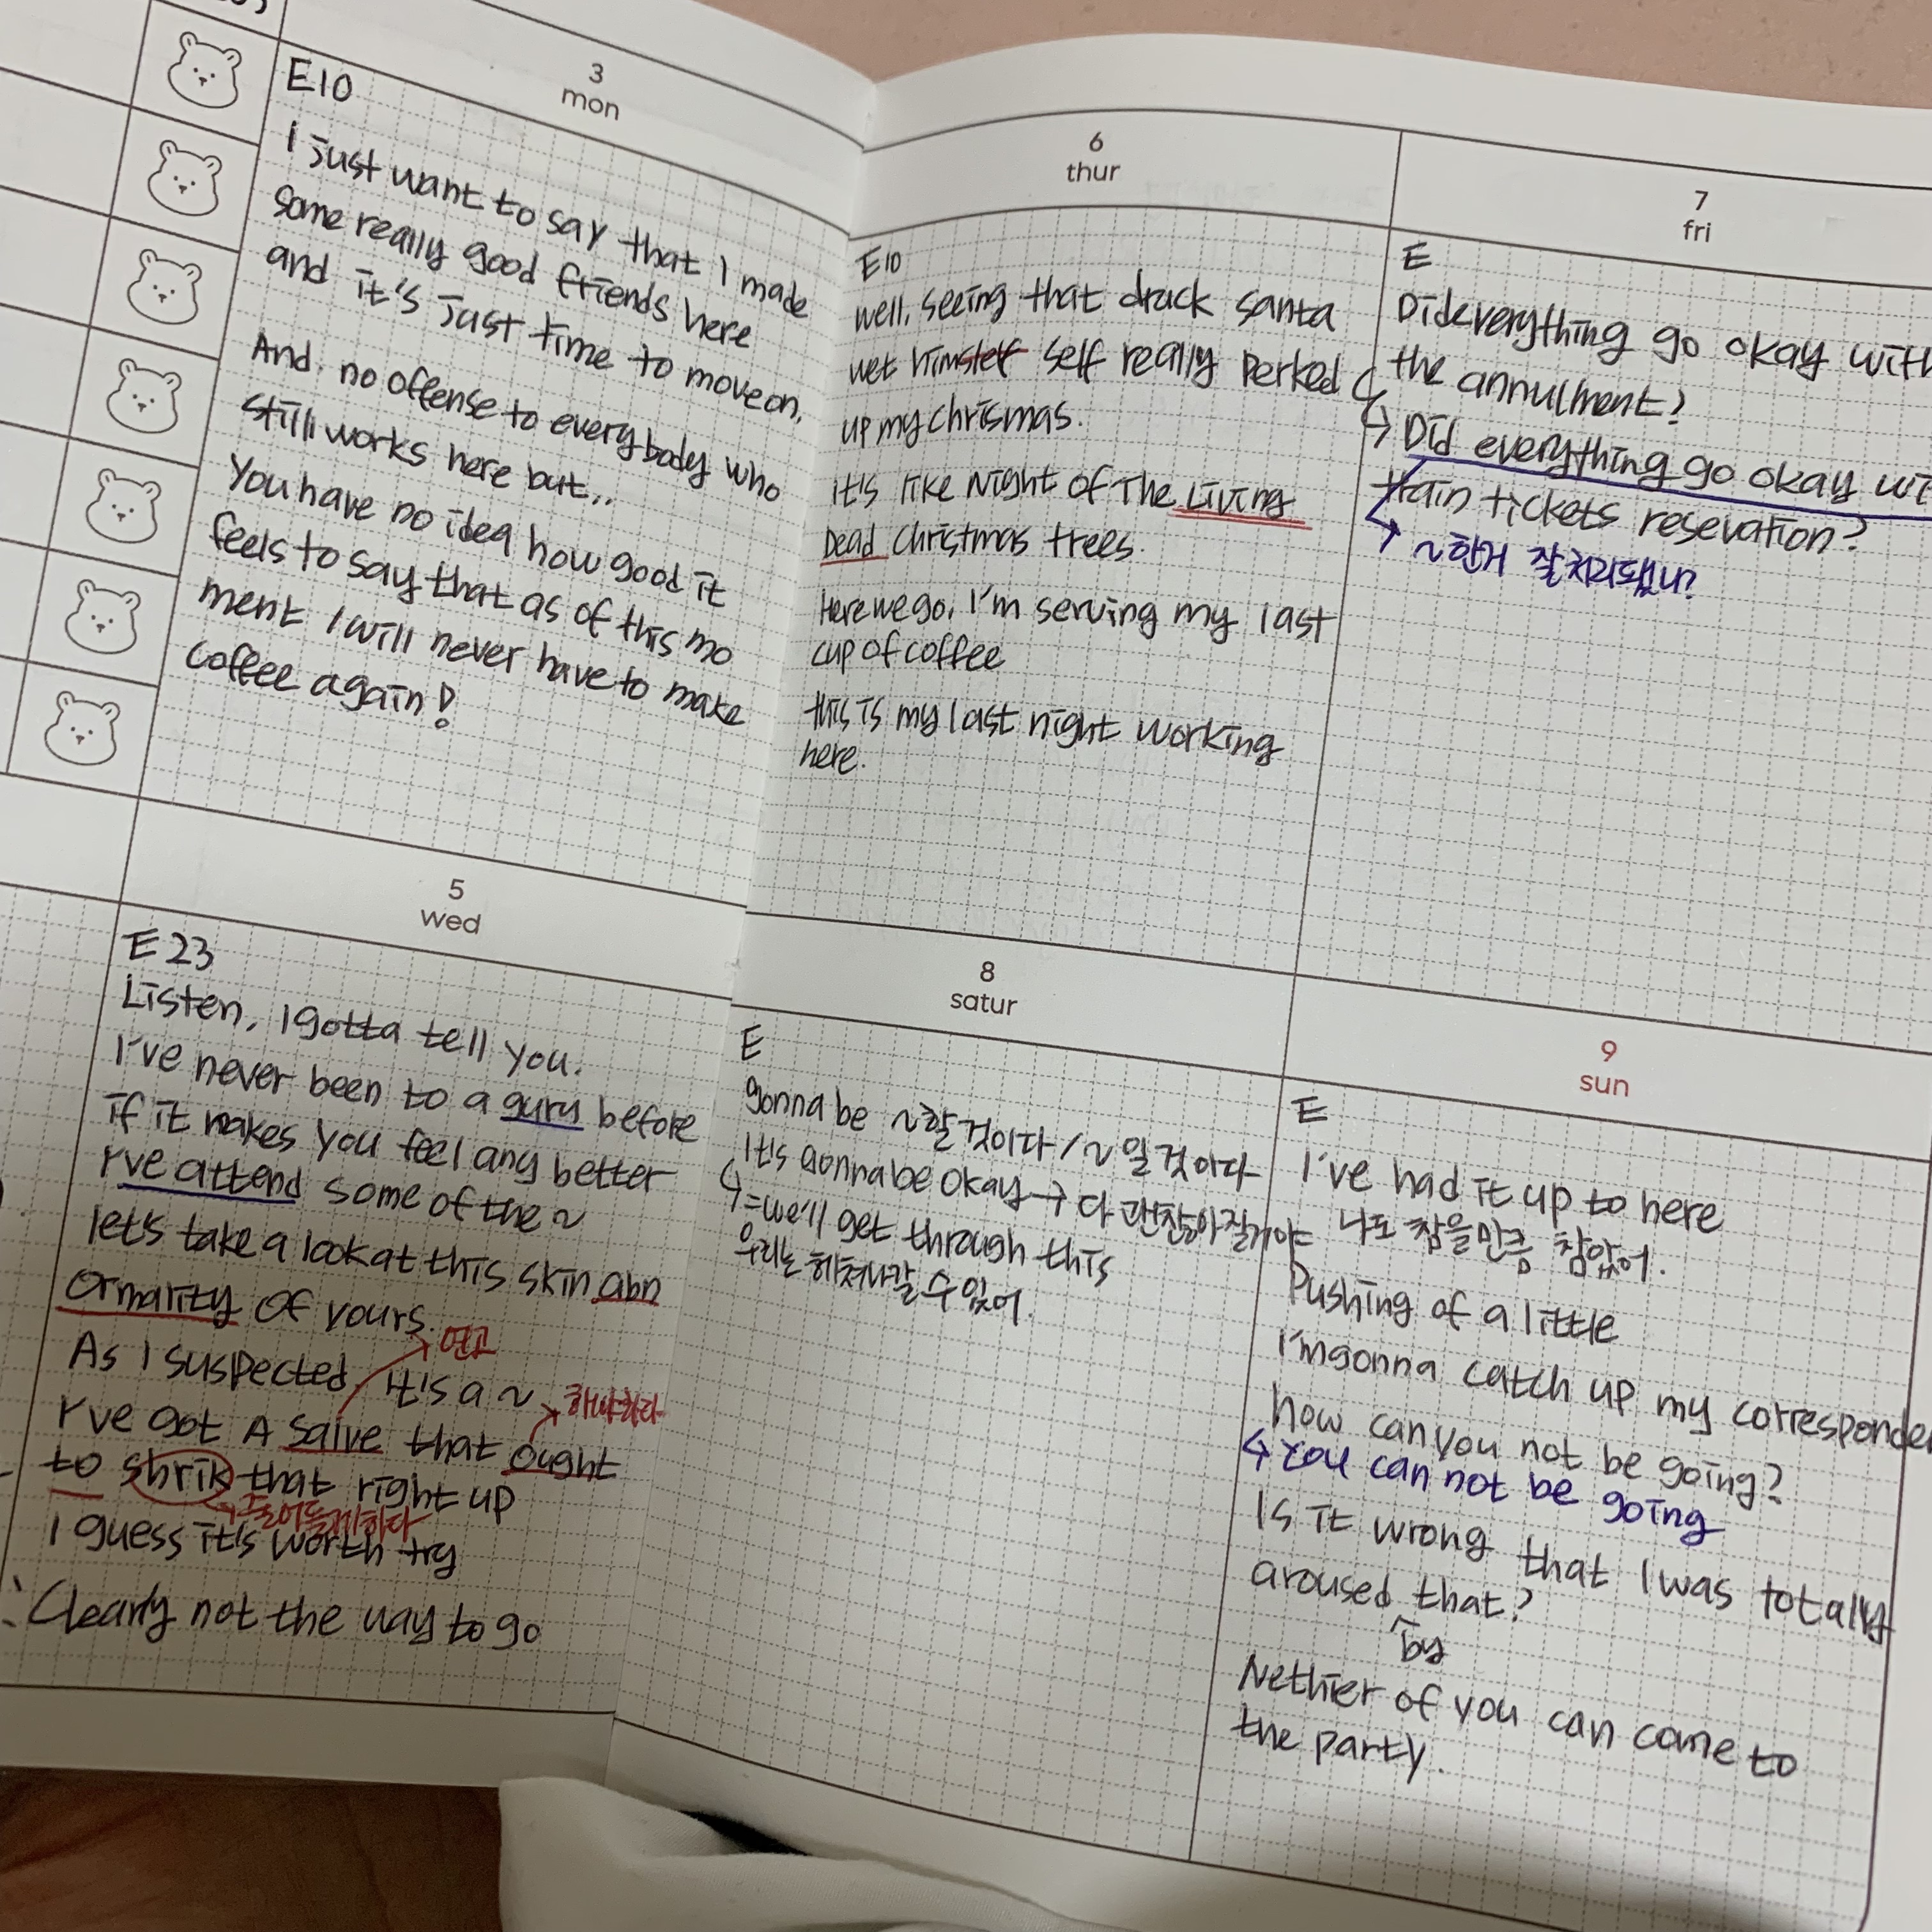 3
mon
E10
I just want to say that I made
some really good friends here
and it's just time to move on,
And, no offense to everybody who
still works here but...
You have no idea how good it
feels to say that as of this mo
ment I will never have to make
coffee again!
5
wed
E 23
Listen, I gotta tell you.
I've never been to a guru before
if it makes you feel any better
I've attend some of the ~
let's take a look at this skin abn
ormarity of yours.
연고
As I suspected, it's a ~
해야하다
I've got A salve that ought
to shrik that right up
줄어들게하다
I guess it's worth try
Clearly not the way to go
6
thur
E10
well, seeing that drack santa
wet himself self really perked
up my chrismas.
it's like Night of The Living
Dead christmas trees.
Here we go, I'm serving my last
cup of coffee
this is my last night working
here.
7
fri
E
Dideverything go okay with
the annulment?
Did everything go okay wi
train tickets resevation?
~한거 잘처리됐나?
8
satur
E
gonna be ~할 것이다 / ~일 것이다
It's gonna be okay → 다 괜찮아질거야
=we'll get through this
우리는 헤쳐나갈 수 있어.
9
sun
E
I've had it up to here
나도 참을만큼 참았어.
Pushing of a little
I'm gonna catch up my corresponde
how can you not be going?
You can not be going
Is it wrong that I was totally
aroused that?
by
Nethier of you can come to
the party.